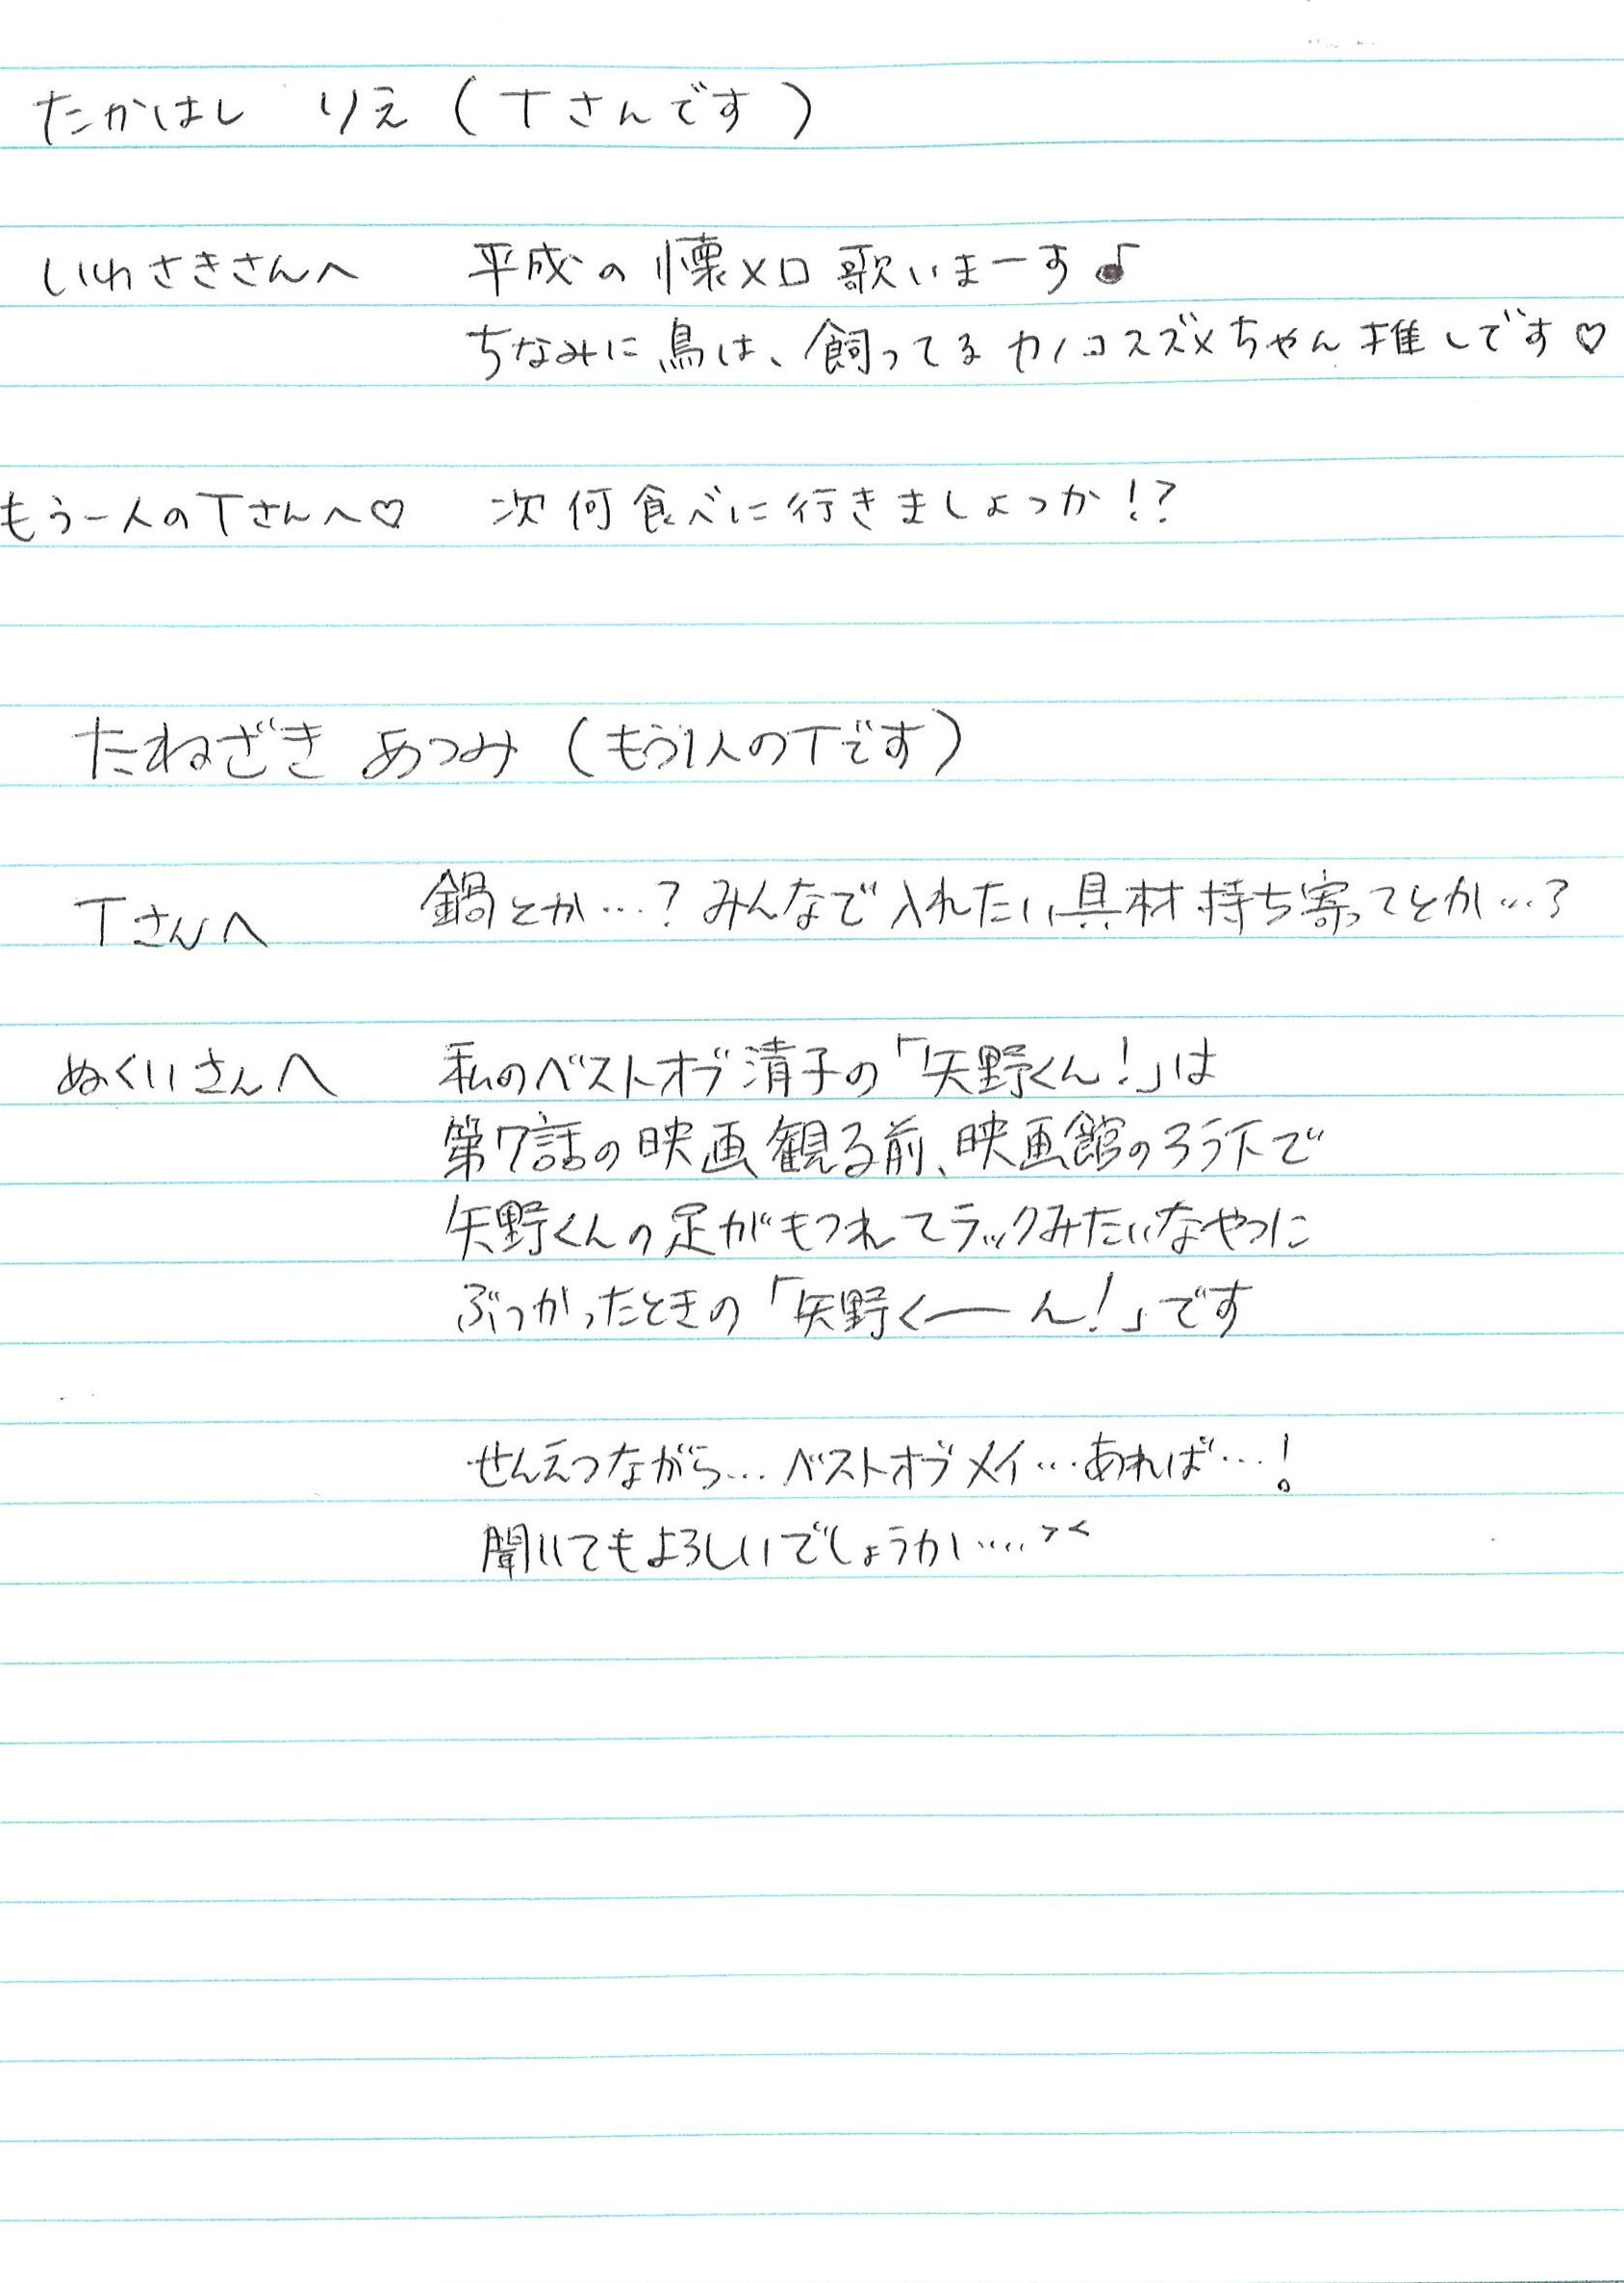 たかはし りえ (Tさんです)
いわさきさんへ 平成の懐メロ歌いまーす♪
ちなみに鳥は、飼ってるカノコスズメちゃん推しです♡
もう一人のTさんへ♡ 次何食べに行きましょっか!?
たねざき あつみ (もう1人のTです)
Tさんへ 鍋とか…?みんなで入れたい具材持ち寄ってとか…?
ぬくいさんへ 私のベストオブ清子の「矢野くん!」は
第7話の映画観る前、映画館のろう下で
矢野くんの足がもつれてラックみたいなやつに
ぶつかったときの「矢野くーーん!」です
せんえつながら…ベストオブメイ…あれば…!
聞いてもよろしいでしょうか….><